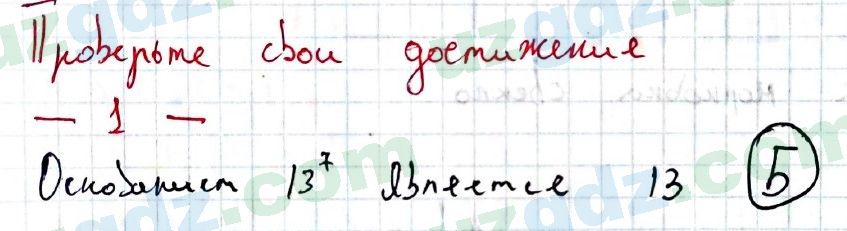 Проверьте свои достижения
— 1 —
Основанием 13⁷ является 13 Б